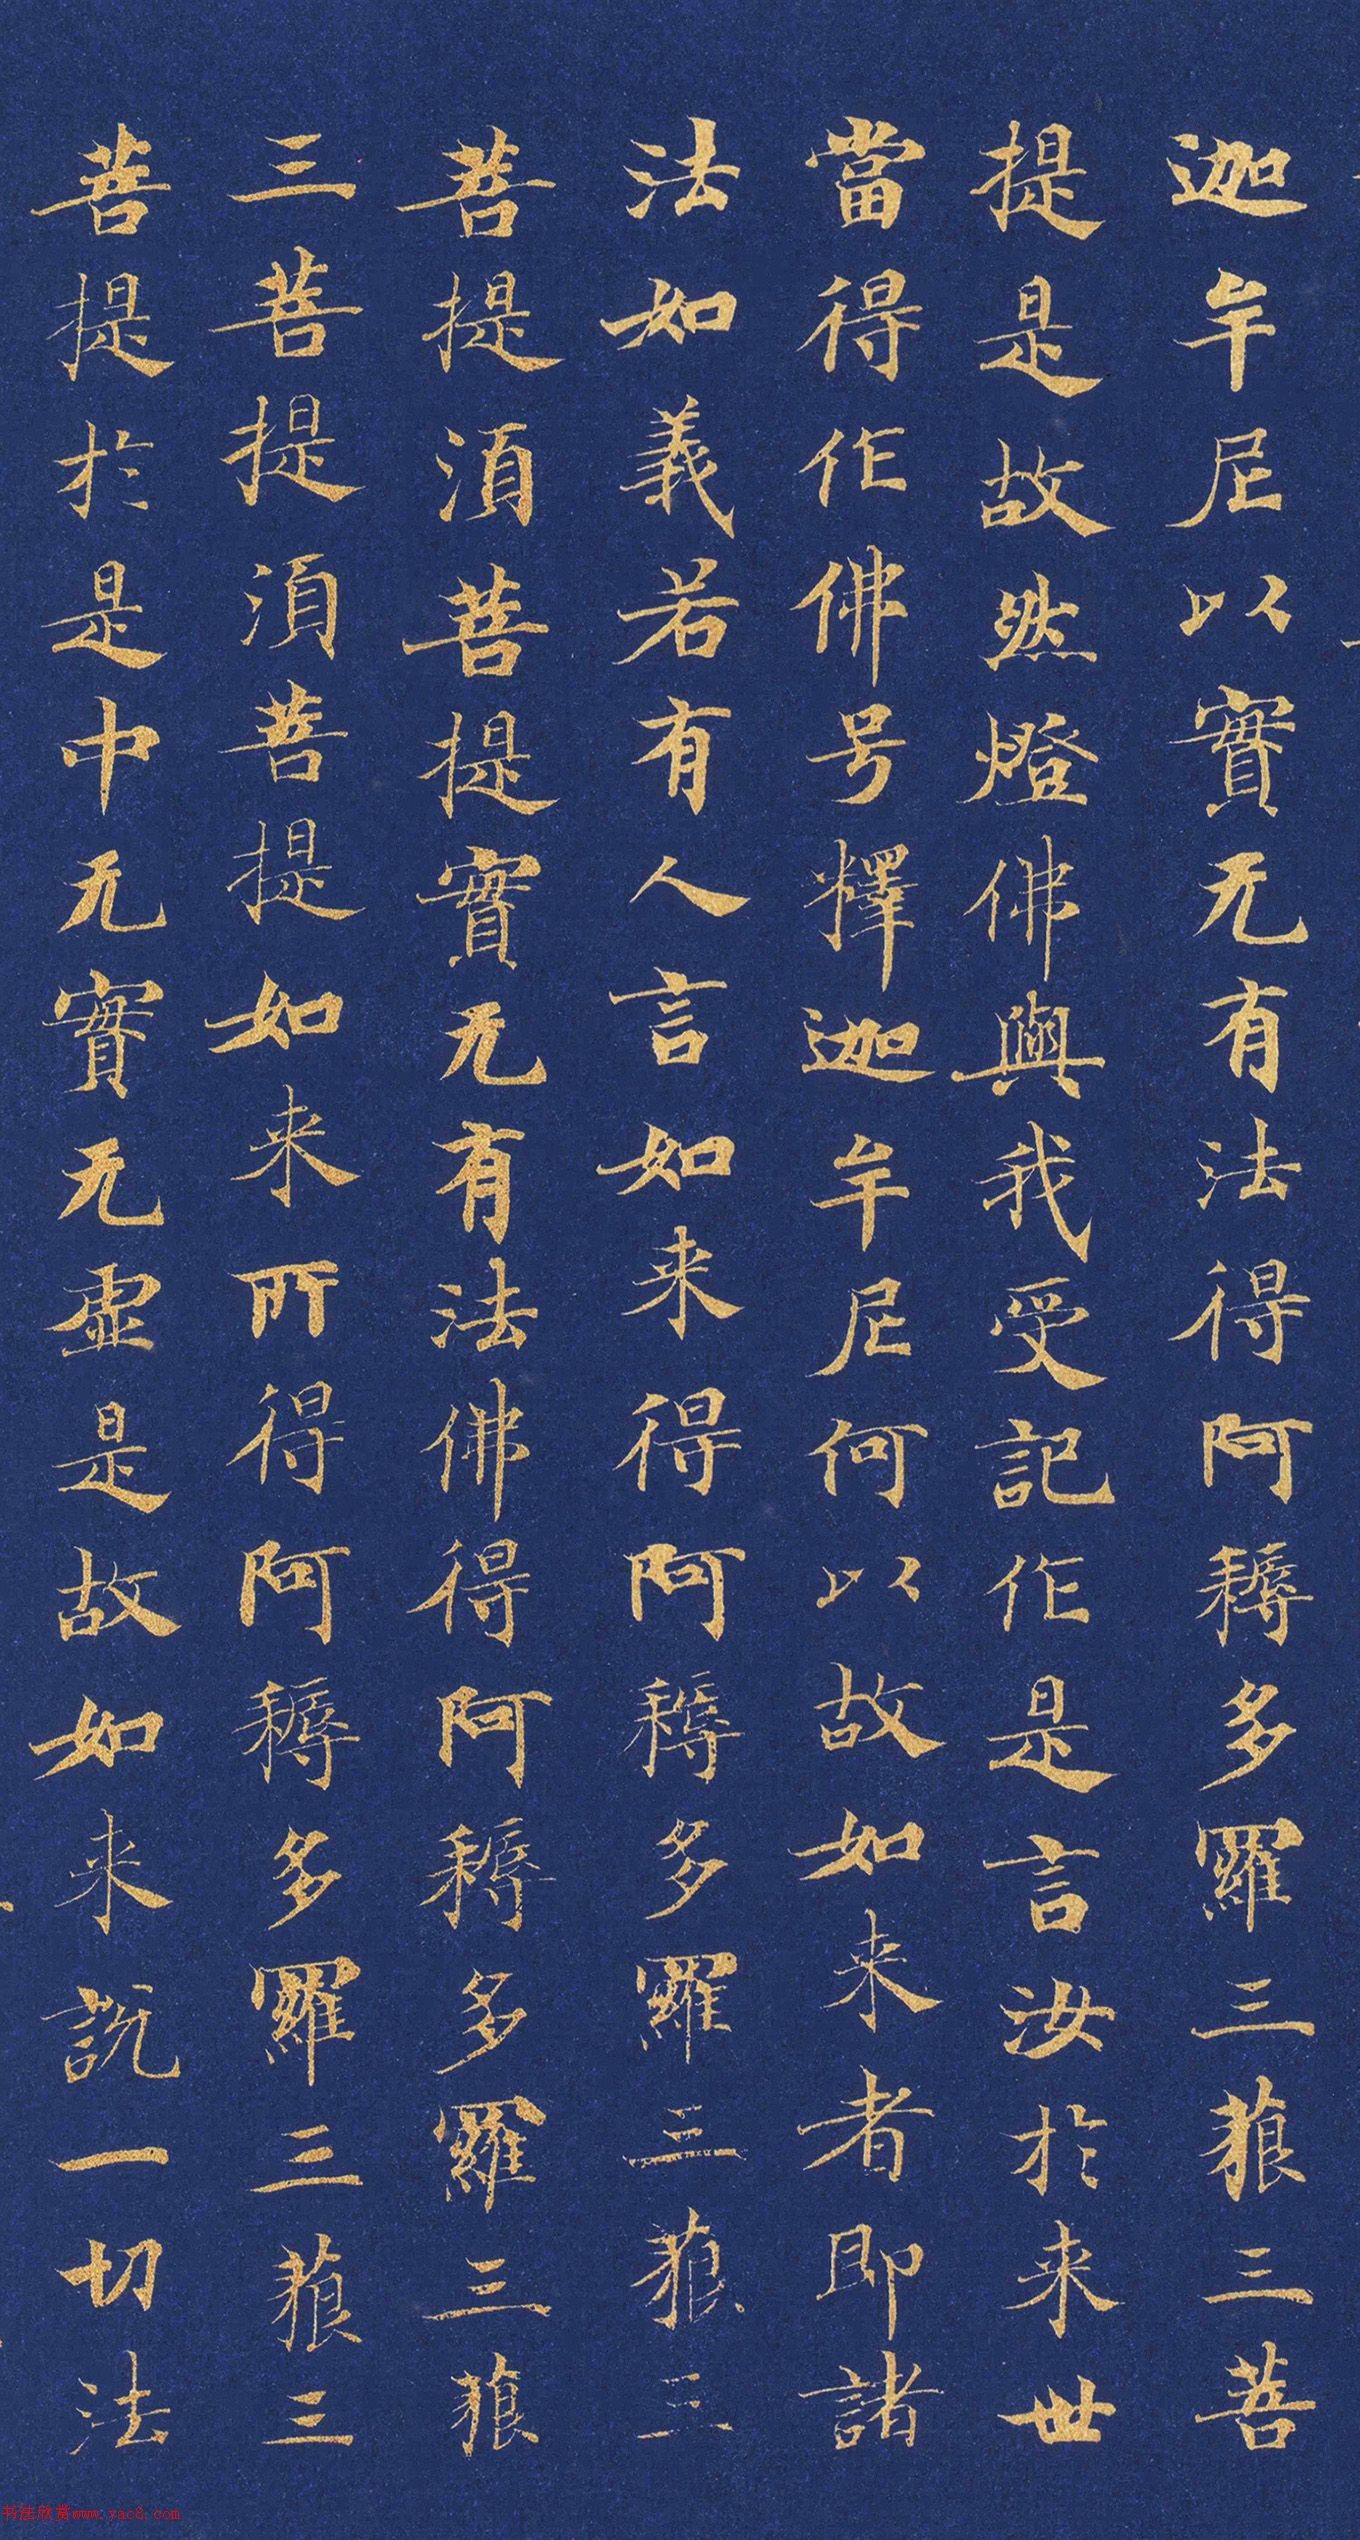 迦牟尼以實无有法得阿耨多羅三藐三菩
提是故然燈佛與我受記作是言汝於来世
當得作佛号釋迦牟尼何以故如来者即諸
法如義若有人言如来得阿耨多羅三藐三
菩提須菩提實无有法佛得阿耨多羅三藐
三菩提須菩提如来所得阿耨多羅三藐三
菩提於是中无實无虛是故如来說一切法
书法欣赏www.yac8.com